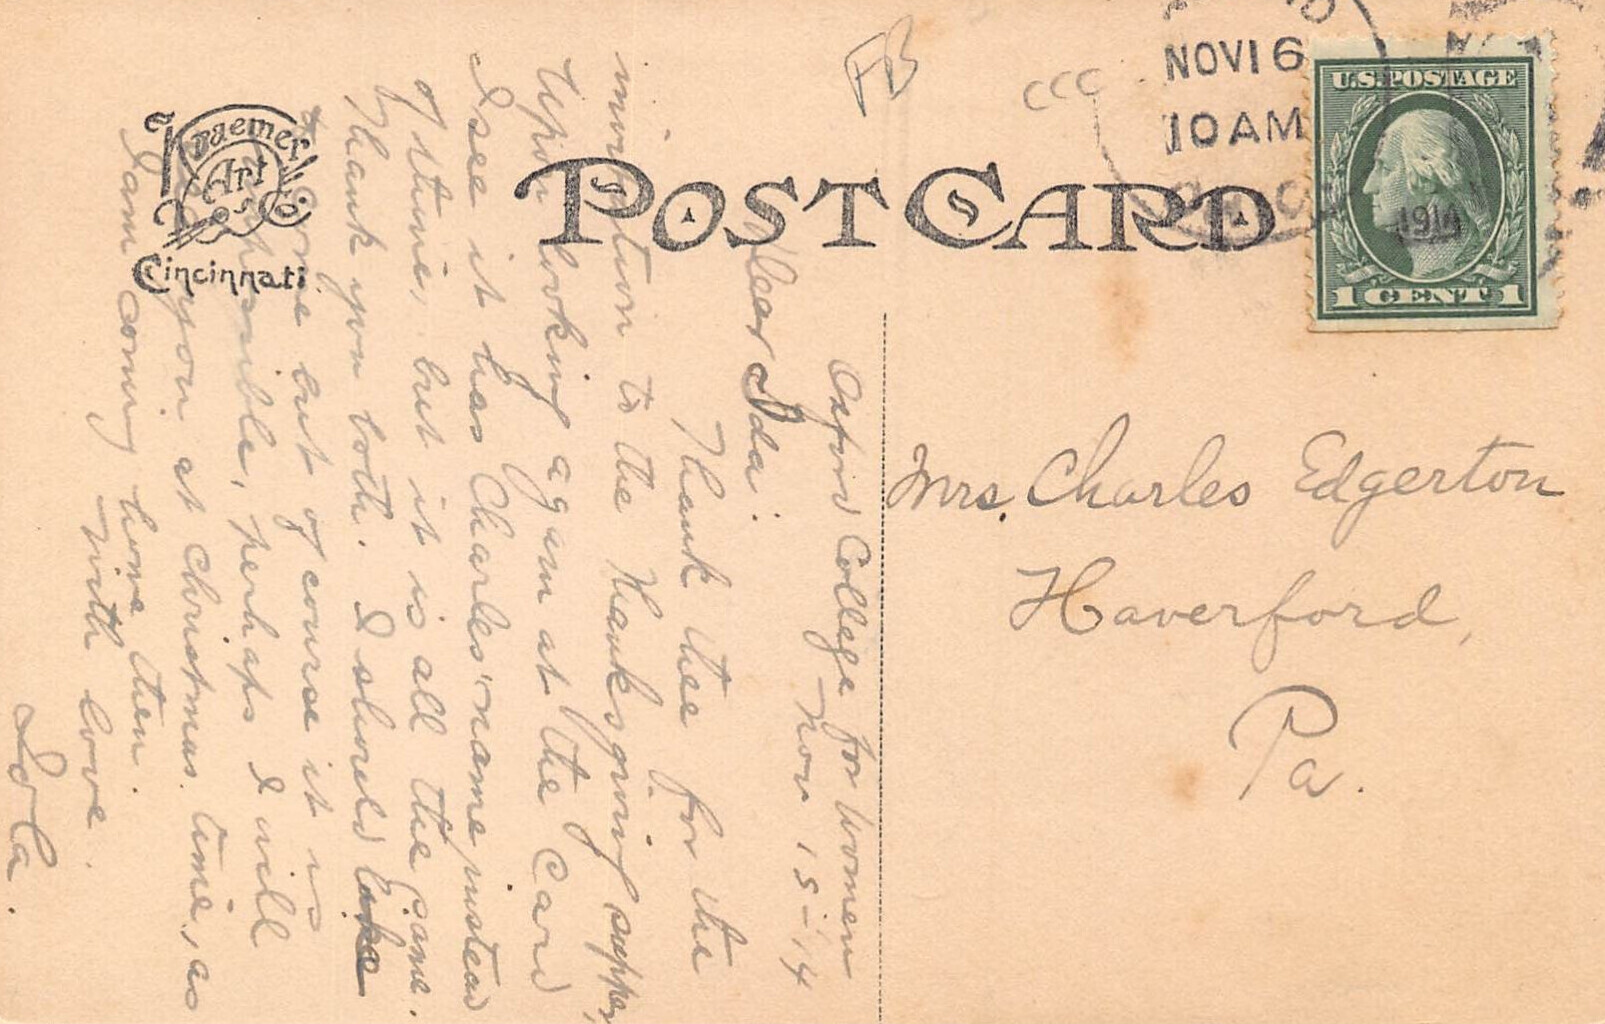 The
Kraemer
Art
Co.
Cincinnati
POST CARD
FB
CCC
NOV 16
10 AM
1914
U.S. POSTAGE
1 CENT 1
Oxford College for Women
Nov 15-'14
Dear Ida:
Thank thee for the
invitation to the Thanksgiving supper,
Upon looking again at the card
I see it has Charles' name instead
of thine, but it is all the same.
Thank you both. I should like
to come but of course it is
impossible, perhaps I will
see you at Christmas time, as
I am coming home then.
With love.
Lola.
Mrs. Charles Edgerton
Haverford,
Pa.